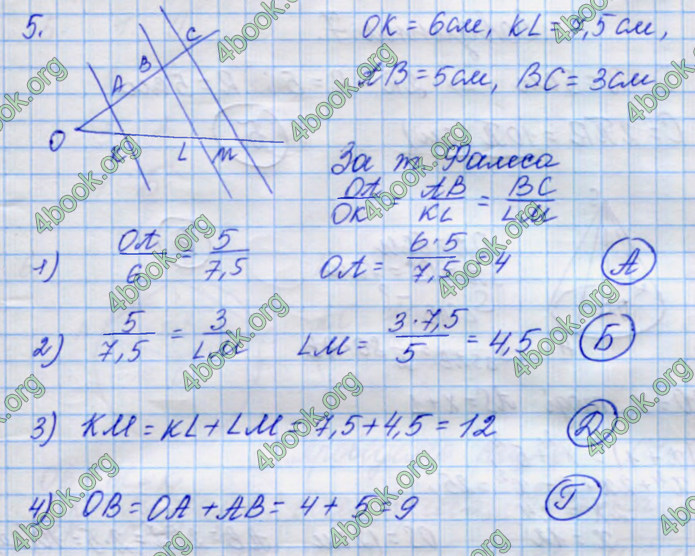 5.
OK = 6см, KL = 7,5см,
AB = 5см, BC = 3см
A B C
O K L M
За т Фалеса
OA/OK = AB/KL = BC/LM
1) OA/6 = 5/7,5 OA = 6·5/7,5 = 4 А
2) 5/7,5 = 3/LM LM = 3·7,5/5 = 4,5 Б
3) KM = KL + LM = 7,5 + 4,5 = 12 Д
4) OB = OA + AB = 4 + 5 = 9 Г
4book.org